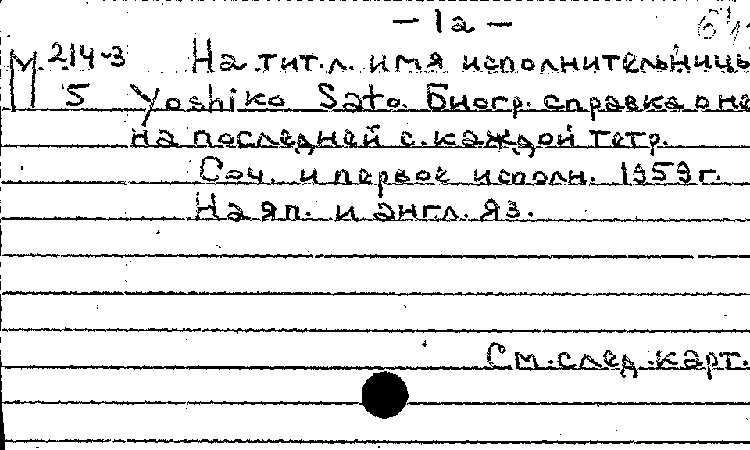 – 1а –
М 214-3 На тит. л. имя исполнительницы
5 Yoshiko Sato. Биогр. справка о не
на последней с. каждой тетр.
Соч. и первое исполн. 1959 г.
На яп. и англ. яз.
См. след. карт.